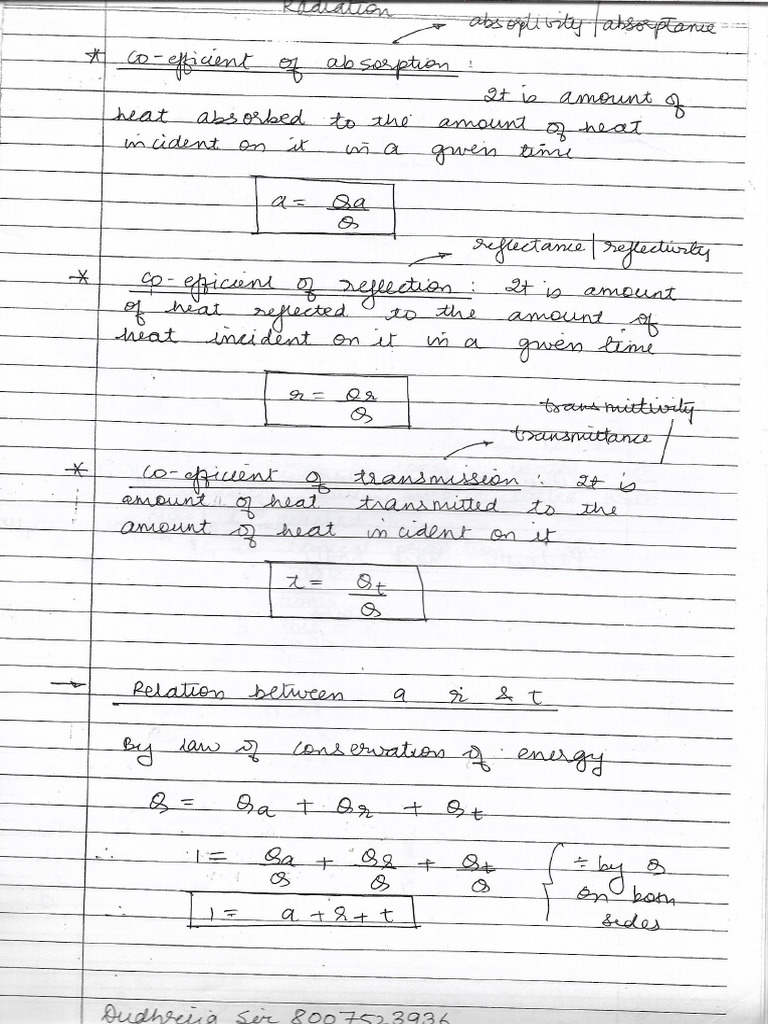 Radiation
absorptivity / absorptance
* co-efficient of absorption :
It is amount of
heat absorbed to the amount of heat
incident on it in a given time
a = Qa / Q
reflectance / reflectivity
* co-efficient of reflection : It is amount
of heat reflected to the amount of
heat incident on it in a given time
r = Qr / Q
transmittivity
transmittance /
* co-efficient of transmission : It is
amount of heat transmitted to the
amount of heat incident on it
t = Qt / Q
→ Relation between a r & t
By law of conservation of energy
Q = Qa + Qr + Qt
∴ 1 = Qa / Q + Qr / Q + Qt / Q { ÷ by Q
on both
sides
∴ 1 = a + r + t
Dudhreja Sir 8007523936